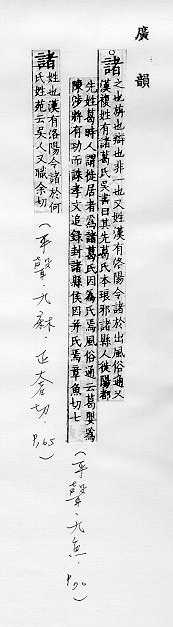 廣韻
諸之也旃也辯也非一也又姓漢有洛陽令諸於出風俗通又
漢複姓有諸葛氏吳書曰其先葛氏本琅邪諸縣人徙陽都
先姓葛時人謂徙居者爲諸葛氏因爲氏焉風俗通云葛嬰爲
陳涉將有功而誅孝文追錄封諸縣侯因并氏焉章魚切七
(平聲.九魚.P.70)
諸姓也漢有洛陽令諸於何
氏姓苑云吳人又職余切
(平聲.九麻.正奢切.P.165)